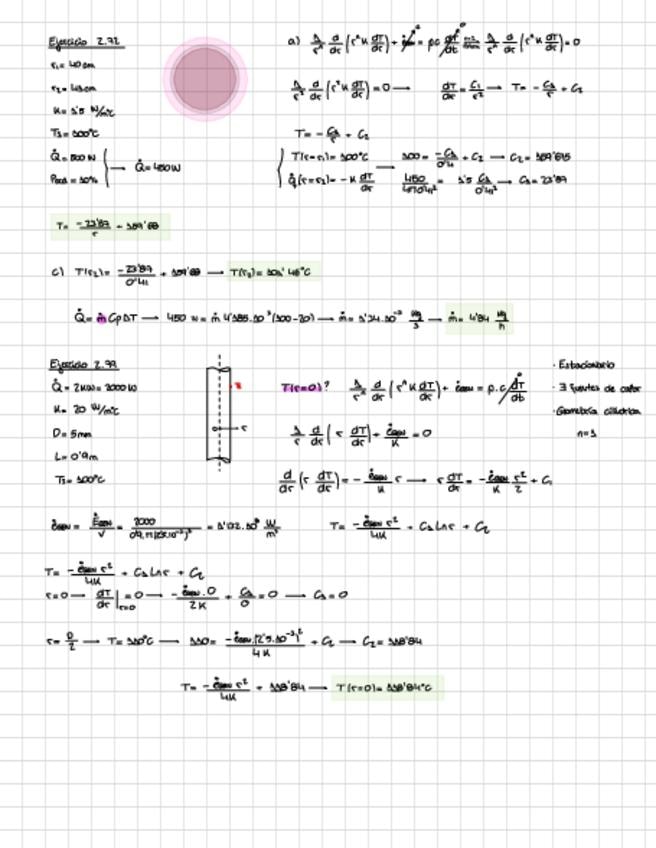 Ejercicio 2.72
r₁= 40 cm
r₂= 41 cm
K= 1'5 W/m°C
T₁= 100°C
Q̇= 500 W
Q̇= 450W
a) 1/rⁿ d/dr (rⁿ K dT/dr) + ėgen = ρc dT/dt 1/rⁿ d/dr (rⁿ K dT/dr) = 0
1/r² d/dr (r² K dT/dr) = 0 → dT/dr = C₁/r² → T= -C₁/r + C₂
T= -C₁/r + C₂
T(r=r₁)= 100°C → 100= -C₁/0'4 + C₂ → C₂=
Q̇(r=r₂)= -K dT/dr
T= -23'87/r + 159'68
c) T(r₂)= -23'87/0'41 + 159'68 → T(r₂)= 101'46°C
Q̇= ṁ Cp ΔT → 450 W= ṁ 4'185·10³(100-20) → ṁ= 1'34·10⁻³ kg/s → ṁ= 4'84 kg/h
Ejercicio 2.79
Q̇= 2KW= 2000W
K= 20 W/m°C
D= 5mm
L= 0'9m
T(r=0)? 1/rⁿ d/dr (rⁿ K dT/dr) + ėgen = ρ.c dT/dt
· Estacionario
· Geometría cilíndrica
n=1
1/r d/dr (r dT/dr) + ėgen/K = 0
d/dr (r dT/dr) = -ėgen/K r → r dT/dr = -ėgen/K r²/2 + C₁
ėgen= Ėgen/V = 2000/0'9·π(2'5·10⁻³)² = 1'132·10⁸ W/m³ T= -ėgen r²/4K + C₁ Lnr + C₂
T= -ėgen r²/4K + C₁ Lnr + C₂
r=0 → dT/dr |r=0 = 0 → -ėgen·0/2K + C₁/0 = 0 → C₁= 0
r= D/2 → T= 110°C → 110= -ėgen·(2'5·10⁻³)²/4K + C₂ → C₂= 118'84
T= -ėgen r²/4K + 118'84 → T(r=0)= 118'84°C